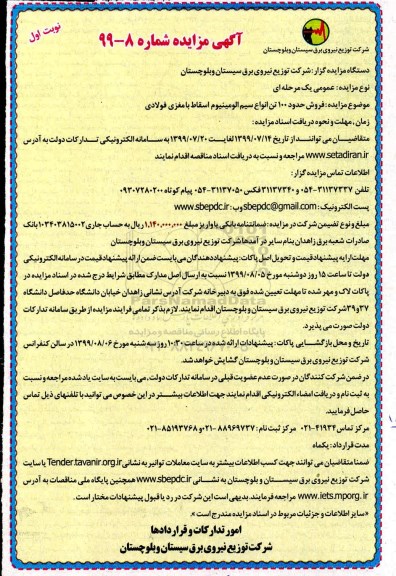 نوبت اول
آگهی مزایده شماره ۸-۹۹
شرکت توزیع نیروی برق سیستان وبلوچستان
دستگاه مزایده گزار: شرکت توزیع نیروی برق سیستان وبلوچستان
نوع مزایده: عمومی یک مرحله ای
موضوع مزایده: فروش حدود ۱۰۰ تن انواع سیم آلومینیوم اسقاط با مغزی فولادی
زمان، مهلت و نحوه دریافت اسناد مزایده:
متقاضیان می توانند از تاریخ ۱۳۹۹/۰۷/۱۴ لغایت ۱۳۹۹/۰۷/۲۰ به سامانه الکترونیکی تدارکات دولت به آدرس
www.setadiran.ir مراجعه و نسبت به دریافت اسناد مناقصه اقدام نمایند
اطلاعات تماس مزایده گزار:
تلفن ۳۱۱۳۷۳۳۷-۰۵۴ و ۳۱۱۳۷۳۴۰ فکس ۳۱۱۳۷۰۵۰-۰۵۴ پیام کوتاه ۰۹۳۰۷۲۸۰۲۰۰
پست الکترونیک: sbepdc@gmail.com وب: www.sbepdc.ir
مبلغ و نوع تضمین شرکت در مزایده: ضمانتنامه بانکی یا واریز مبلغ ۱,۱۴۰,۰۰۰,۰۰۰ ریال به حساب جاری ۰۱۰۳۴۰۳۸۱۵۰۰۲ بانک
صادرات شعبه برق زاهدان بنام سایر درآمدها شرکت توزیع نیروی برق سیستان وبلوچستان
مهلت ارایه پیشنهاد قیمت و تحویل اصل پاکات: پیشنهاد دهندگان می بایست ضمن ارائه پیشنهاد قیمت در سامانه الکترونیکی
دولت تا ساعت ۱۵ روز دوشنبه مورخ ۱۳۹۹/۰۸/۰۵ نسبت به ارسال اصل مدارک مطابق شرایط درج شده در اسناد مزایده در
پاکات لاک و مهر شده تا مهلت تعیین شده فوق به دبیرخانه شرکت آدرس نشانی زاهدان خیابان دانشگاه حدفاصل دانشگاه
۳۷ و ۳۹ شرکت توزیع نیروی برق سیستان و بلوچستان اقدام نمایند. لازم بذکر تمامی فرایند مزایده از طریق سامانه تدارکات
دولت صورت می پذیرد.
تاریخ و محل بازگشایی پاکات: پیشنهادات ارائه شده در ساعت ۱۰:۳۰ روز سه شنبه مورخ ۱۳۹۹/۰۸/۰۶ در سالن کنفرانس
شرکت توزیع نیروی برق سیستان و بلوچستان گشایش خواهد شد.
در ضمن شرکت کنندگان در صورت عدم عضویت قبلی در سامانه تدارکات دولت، می بایست به سایت یاد شده مراجعه و نسبت
به ثبت نام و دریافت امضاء الکترونیکی اقدام نمایند جهت اطلاعات بیشتر در این خصوص می توانید با تلفنهای ذیل تماس
حاصل فرمایید.
مرکز تماس ۴۱۹۳۴-۰۲۱ مرکز ثبت نام: ۸۸۹۶۹۷۳۷-۰۲۱ و ۸۵۱۹۳۷۶۸-۰۲۱
مدت قرارداد: یکماه
ضمنا متقاضیان می توانند جهت کسب اطلاعات بیشتر به سایت معاملات توانیر به نشانی Tender.tavanir.org.ir یا سایت
شرکت توزیع نیروی برق سیستان و بلوچستان به نشانی www.sbepdc.ir همچنین پایگاه ملی مناقصات به آدرس
www.iets.mporg.ir مراجعه فرمایند. بدیهی است این شرکت در رد یا قبول پیشنهادات مختار است.
«سایر اطلاعات و جزئیات مربوط در اسناد مزایده مندرج است».
امور تدارکات و قراردادها
شرکت توزیع نیروی برق سیستان وبلوچستان